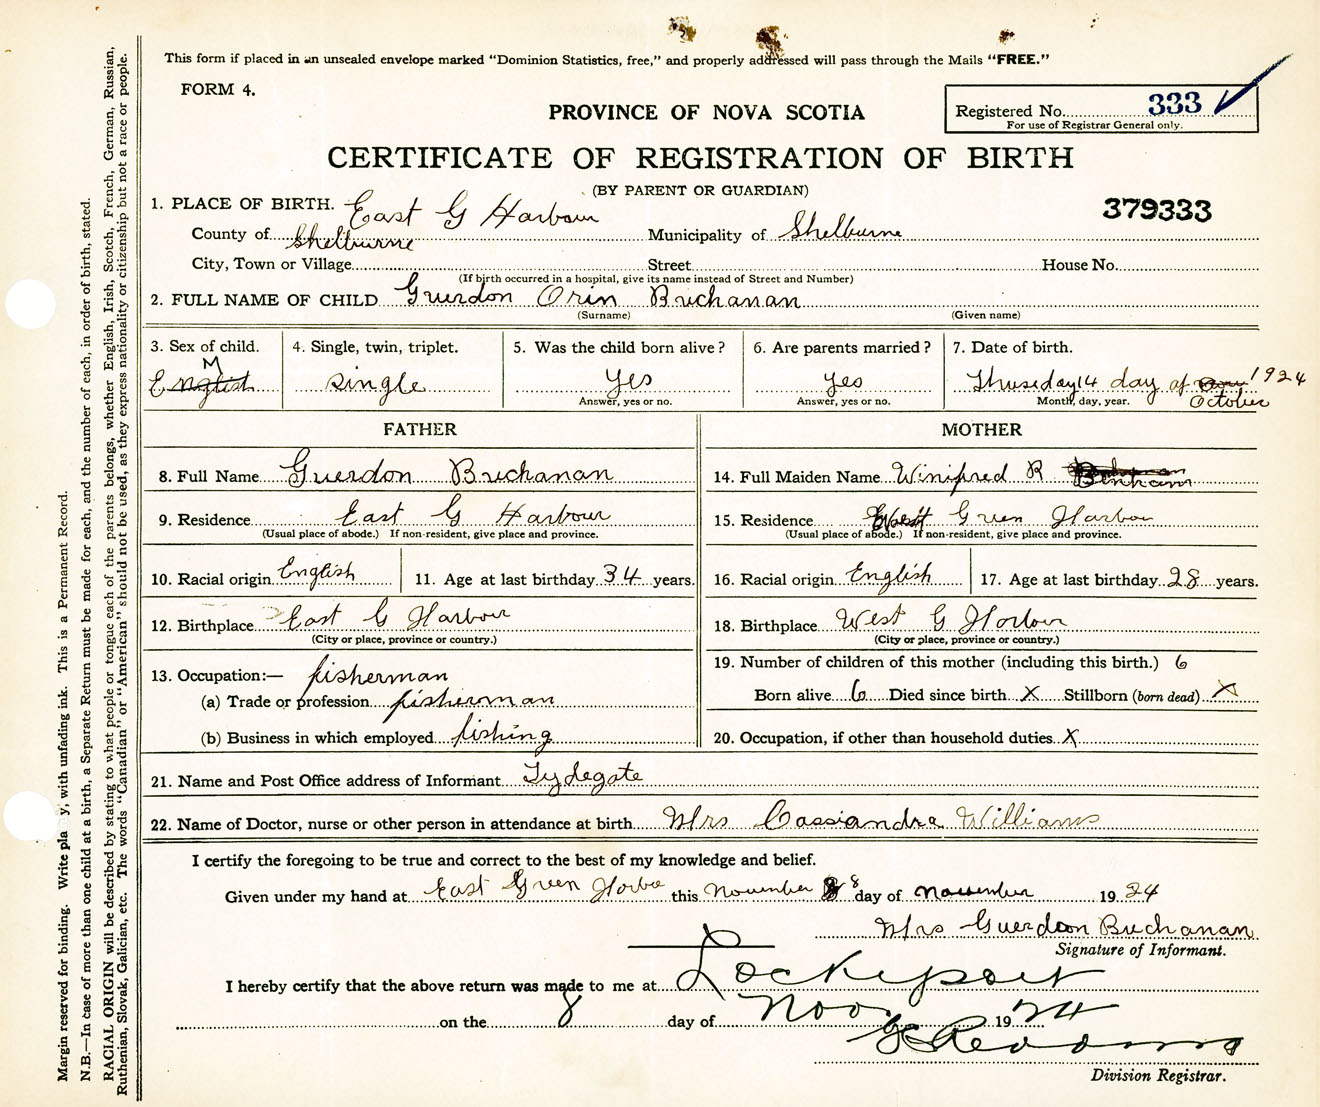 This form if placed in an unsealed envelope marked "Dominion Statistics, free," and properly addressed will pass through the Mails "FREE."
FORM 4.
PROVINCE OF NOVA SCOTIA
Registered No. 333
For use of Registrar General only.
CERTIFICATE OF REGISTRATION OF BIRTH
(BY PARENT OR GUARDIAN)
379333
1. PLACE OF BIRTH. East G Harbour
County of Shelburne Municipality of Shelburne
City, Town or Village Street House No.
(If birth occurred in a hospital, give its name instead of Street and Number)
2. FULL NAME OF CHILD Guerdon Orin Buchanan
(Surname) (Given name)
3. Sex of child. 4. Single, twin, triplet. 5. Was the child born alive? 6. Are parents married? 7. Date of birth.
M
English single yes yes Thurseday 14 day of 1924
Answer, yes or no. Answer, yes or no. Month, day, year. October
FATHER MOTHER
8. Full Name Guerdon Buchanan 14. Full Maiden Name Winifred R Benham
9. Residence East G Harbour 15. Residence West Green Harbor
(Usual place of abode.) If non-resident, give place and province. (Usual place of abode.) If non-resident, give place and province.
10. Racial origin English 11. Age at last birthday 34 years. 16. Racial origin English 17. Age at last birthday 28 years.
12. Birthplace East G Harbour 18. Birthplace West G Horbour
(City or place, province or country.) (City or place, province or country.)
13. Occupation:— fisherman 19. Number of children of this mother (including this birth.) 6
(a) Trade or profession fisherman Born alive 6 Died since birth X Stillborn (born dead) X
(b) Business in which employed fishing 20. Occupation, if other than household duties X
21. Name and Post Office address of Informant Tydegate
22. Name of Doctor, nurse or other person in attendance at birth Mrs Cassiandra Williams
I certify the foregoing to be true and correct to the best of my knowledge and belief.
Given under my hand at East Green Horbor this November 8 day of November 1924
Mrs Guerdon Buchanan
Signature of Informant.
I hereby certify that the above return was made to me at Lockeport
on the 8 day of Nov 1924
Division Registrar.
Margin reserved for binding. Write pla y, with unfading ink. This is a Permanent Record.
N.B.—In case of more than one child at a birth, a Separate Return must be made for each, and the number of each, in order of birth, stated.
RACIAL ORIGIN will be described by stating to what people or tongue each of the parents belongs, whether English, Irish, Scotch, French, German, Russian,
Ruthenian, Slovak, Galician, etc. The words "Canadian" or "American" should not be used, as they express nationality or citizenship but not a race or people.